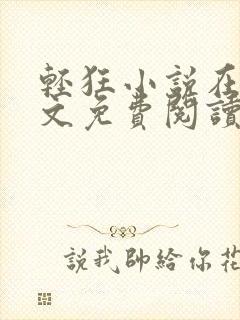 輕狂小說在
文免費閱讀
說我帥給你花